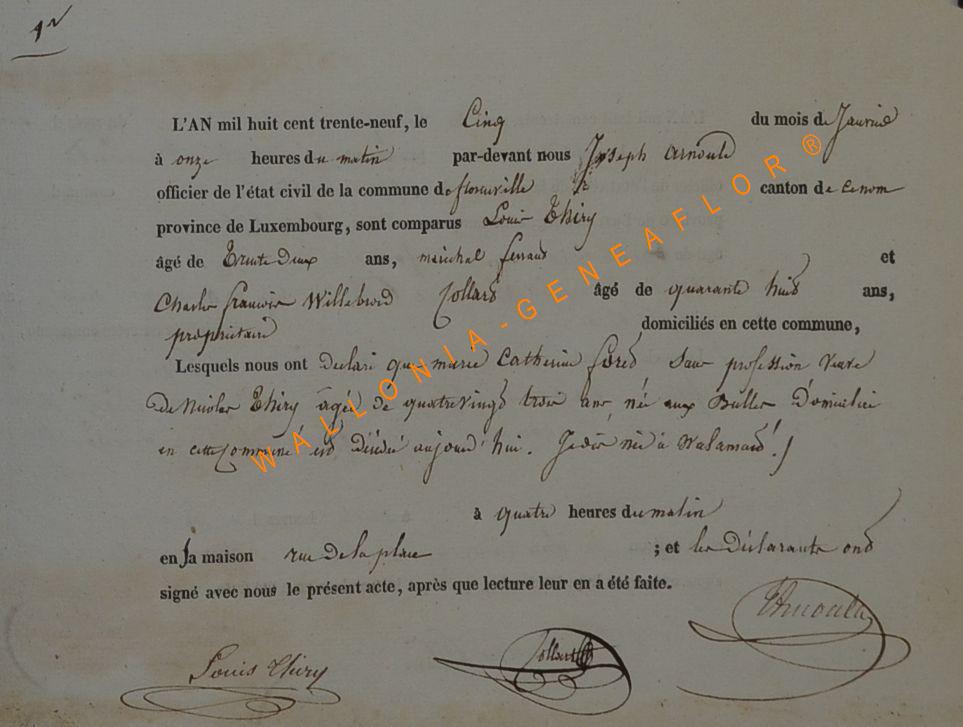 1r
L'AN mil huit cent trente-neuf, le Cinq du mois de Janvier
à onze heures du matin par-devant nous Joseph Arnould
officier de l'état civil de la commune de florenville canton de idem
province de Luxembourg, sont comparus Louis Thiry
âgé de Trente Deux ans, maréchal ferrand et
Charles françois Willebrord Collard âgé de quarante huit ans,
propriétaire domiciliés en cette commune,
Lesquels nous ont déclaré que marie Catherine sans profession veuve
de Nicolas Thiry âgée de quatrevingt trois ans, née aux Bulles Domiciliée
en cette Commune est décédée aujourd'hui. Je dis née à
à quatre heures du matin
en sa maison rue de la place ; et les Déclarants ont
signé avec nous le présent acte, après que lecture leur en a été faite.
Louis Thiry Collard Arnould
WALLONIA-GENEAFLOR®